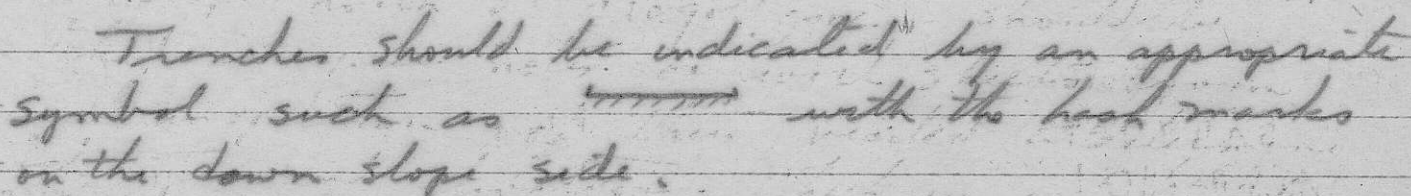 Trenches should be indicated by an appropriate
symbol such as with the hash marks
on the down slope side.